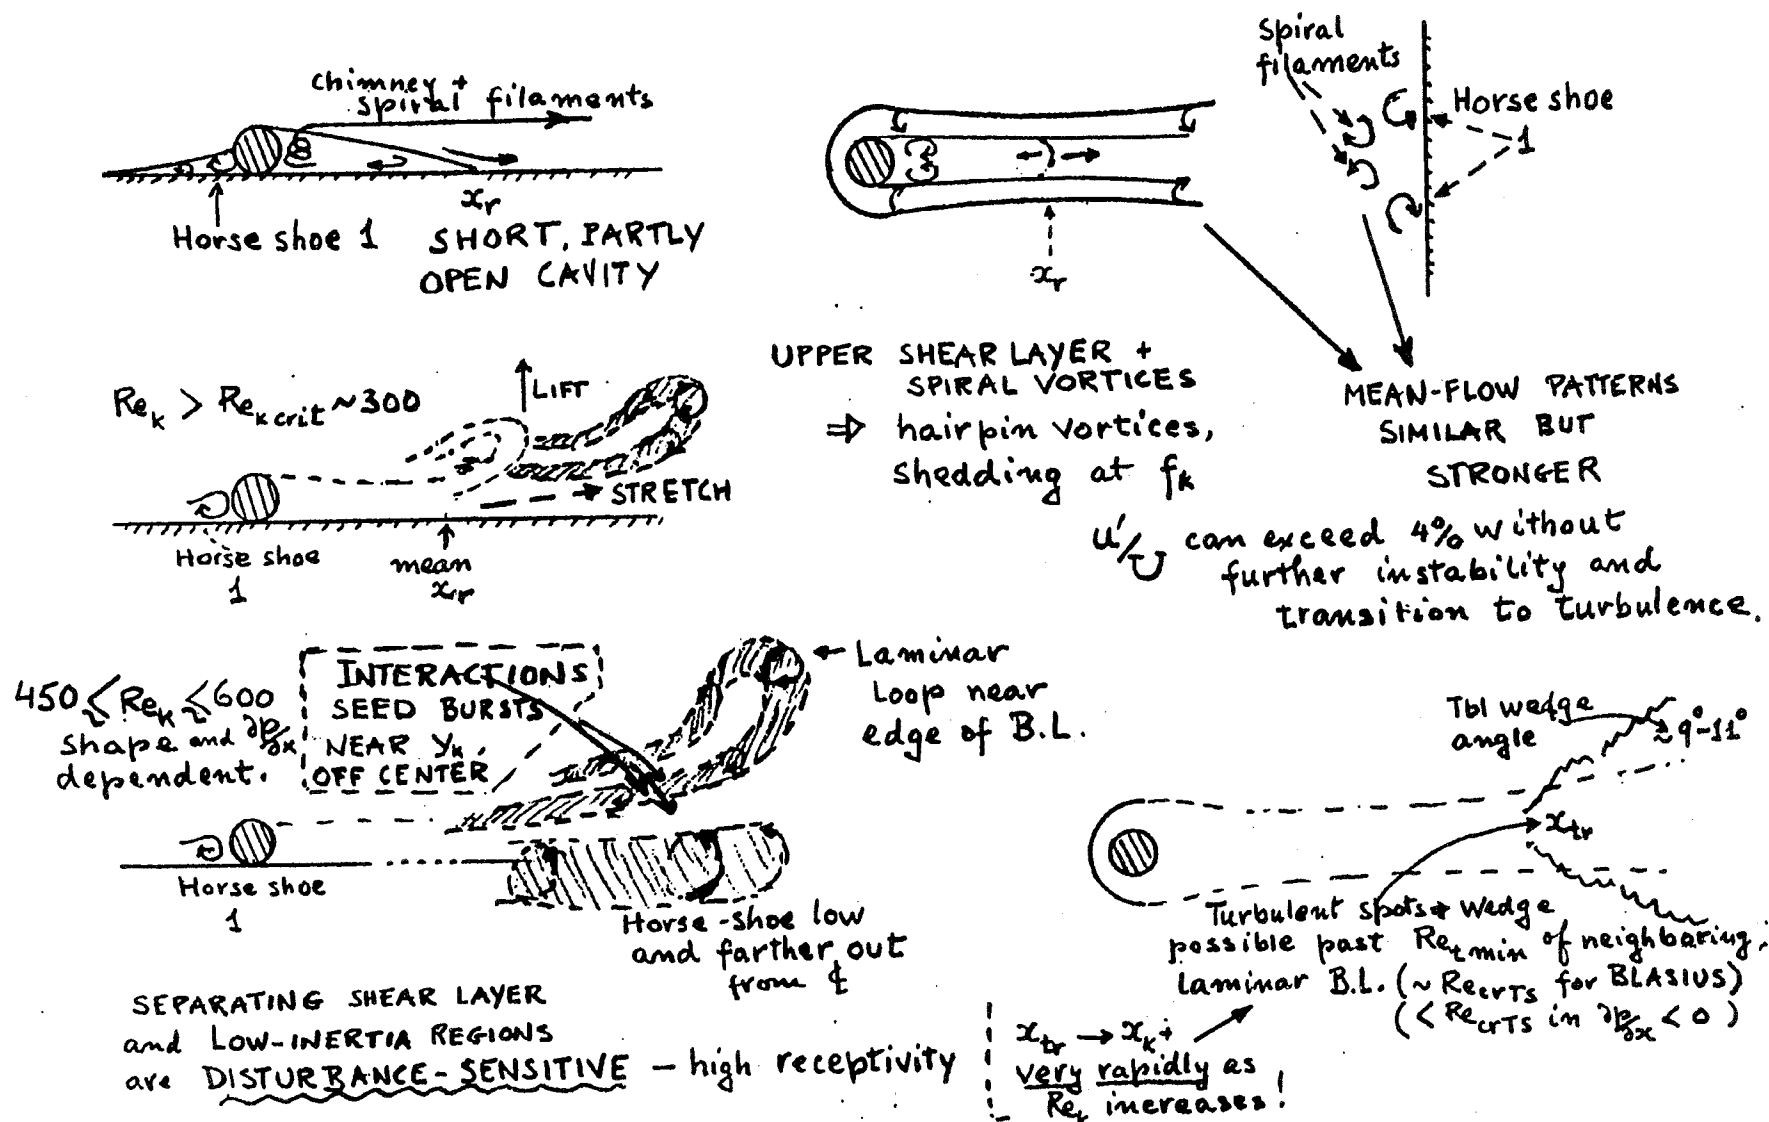 chimney +
spiral filaments
x_r
Horse shoe 1
SHORT, PARTLY
OPEN CAVITY
x_r
spiral
filaments
Horse shoe
1
Re_k > Re_k crit ~300
LIFT
STRETCH
Horse shoe
1
mean
x_r
UPPER SHEAR LAYER +
SPIRAL VORTICES
⇒ hairpin vortices,
shedding at f_k
MEAN-FLOW PATTERNS
SIMILAR BUT
STRONGER
u'/U can exceed 4% without
further instability and
transition to turbulence.
450 ≲ Re_k ≲ 600
shape and ∂p/∂x
dependent.
INTERACTIONS
SEED BURSTS
NEAR y_k,
OFF CENTER
Laminar
Loop near
edge of B.L.
Horse shoe
1
Horse-shoe low
and farther out
from ℄
Tbl wedge
angle
≈ 9°-11°
x_tr
Turbulent spots → Wedge
possible past Re_t min of neighboring
laminar B.L. (~ Re_crTS for BLASIUS)
(< Re_crTS in ∂p/∂x < 0)
SEPARATING SHEAR LAYER
and LOW-INERTIA REGIONS
are DISTURBANCE-SENSITIVE – high receptivity
x_tr → x_k+
very rapidly as
Re_k increases!